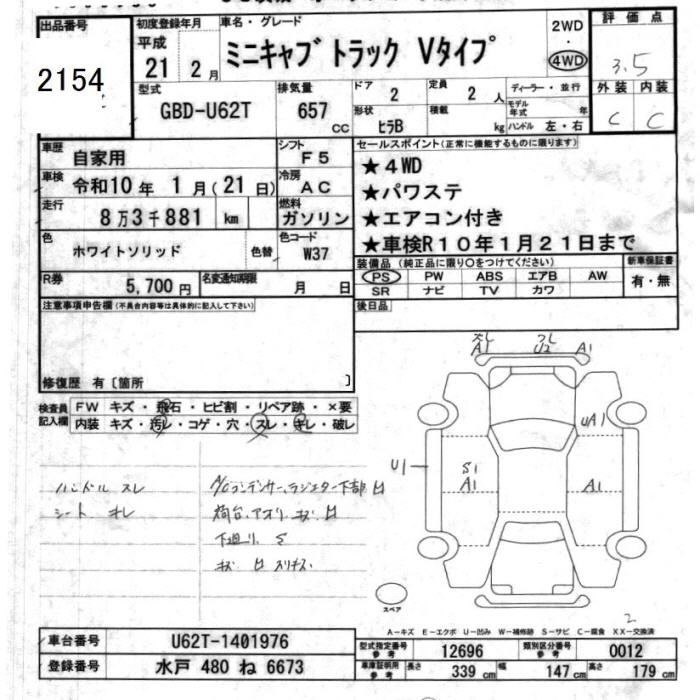 出品番号
2154
初度登録年月
平成
21年 2月
車名・グレード
ミニキャブ トラック Vタイプ
2WD
・
4WD
評価点
3.5
外装 内装
C C
型式
GBD-U62T
排気量
657 cc
ドア
2
定員
2 人
形状
ヒラB
積載
kg
ディーラー・並行
モデル年式 年
ハンドル 左・右
車歴
自家用
シフト
F5
車検
令和10年 1月(21日)
冷房
AC
走行
8万3千881 km
燃料
ガソリン
色
ホワイトソリッド
色替
色コード
W37
R券
5,700円
名変通知期限
月 日
セールスポイント(正常に機能するものに限ります)
★4WD
★パワステ
★エアコン付き
★車検R10年1月21日まで
装備品(純正品に限り○をつけてください)
新車保証書
PS PW ABS エアB AW
SR ナビ TV カワ
有・無
後日品
注意事項申告欄(不具合内容等は具体的に記入して下さい)
修復歴 有〔箇所 〕
検査員記入欄
FW キズ・飛石・ヒビ割・リペア跡・×要
内装 キズ・汚レ・コゲ・穴・スレ・キレ・破レ
ハンドル スレ
シート キレ
A/Cコンデンサー、ラジエター下部
荷台、アオリ
下廻り S
A1 U2 A1
UA1
U1
S1
A1
A1
スペア
2
A-キズ E-エクボ U-凹み W-補修跡 S-サビ C-腐食 XX-交換済
車台番号
U62T-1401976
登録番号
水戸 480 ね 6673
型式指定番号
参考
12696
類別区分番号
参考
0012
車庫証明用
参考
長さ 339 cm 幅 147 cm 高さ 179 cm